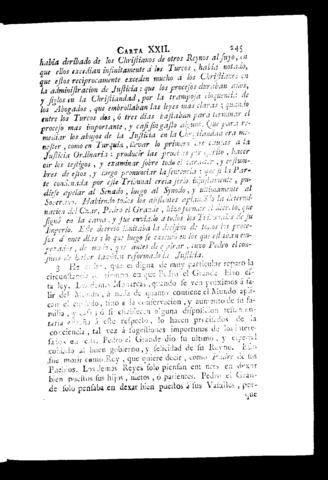 CARTA XXII. 245
havia derivado de los Christianos de otros Reynos al suyo, en
que ellos excedian infinitamente á los Turcos, havia notado,
que estos reciprocamente exceden mucho á los Christianos en
la administracion de Justicia: que los procesos duraban años,
y siglos en la Christiandad, por la tramposa eloquencia de
los Abogados, que embrollaban las leyes mas claras; quando
entre los Turcos dos, ó tres dias bastaban para terminar el
proceso mas importante, y casi sin gasto alguno. Que para re-
mediar los abusos de la Justicia en la Christiandad era me-
nester, como en Turquía, llevar lo primero las causas a la
Justicia Ordinaria: producir las por escrito, hacer
oir los testigos, y examinar sobre todo el caracter, y costum-
bres de estos, y luego pronunciar la sentencia; que si la Par-
te condenada por este Tribunal creía serlo injustamente, pu-
diese apelar al Senado, luego al Synodo, y ultimamente al
Soberano. Habiendo todos los asistentes aplaudido la determi-
nacion del Czar, Pedro el Grande, hizo formar el decreto, que
firmó en la cama, y fue enviado a todos los Tribunales de su
Imperio. Este decreto limitaba la decision de todos los proce-
sos á once dias; lo que luego se executó en los que estaban em-
pezados, de modo, que antes de espirar, tuvo Pedro el con-
suelo de haver tambien reformado la Justicia.
3 He dicho, que es digna de muy particular reparo la
circunstancia del tiempo en que Pedro el Grande hizo es-
ta ley. Los demás Monarcas, quando se ven proximos á sa-
lir del Mundo, á nada de quanto contiene el Mundo apli-
can el cuidado, sino á la conservacion, y aumento de su fa-
milia, y casi si establecen alguna disposicion testamen-
taria á este respecto, lo hacen precisados de la
conciencia, tal vez á sugestiones importunas de los intere-
sados en ella. Pedro el Grande dió su ultimo, y especial
cuidado al buen gobierno, y felicidad de su Reyno. Esto
fue morir como Rey, que quiere decir, como Padre de sus
Pueblos. Los demás Reyes solo piensan entonces en dexar
bien puestos sus hijos, nietos, ó parientes. Pedro el Gran-
de solo pensaba en dexar bien puestos á sus Vasallos, por-
que